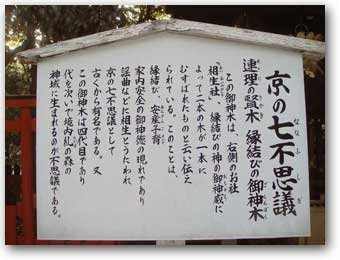 京の七不思議
連理の賢木 縁結びの御神木
この御神木は、右側のお社
「相生社」縁結びの神の御神威に
よって二本の木が一本に
むすばれたものと云い伝え
られている。このことは、
縁結び、安産子育
家内安全の御神徳の現れであり
謡曲などに相生とうたわれ
京の七不思議として
古くから有名である。又
この御神木は四代目であり
代を次いで境内糺の森の
神域に生まれるのが不思議である。